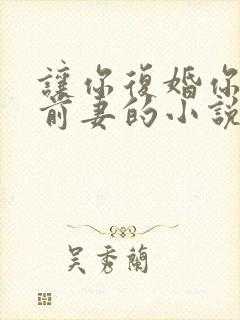 讓你復婚你
前妻的小說
吳秀蘭